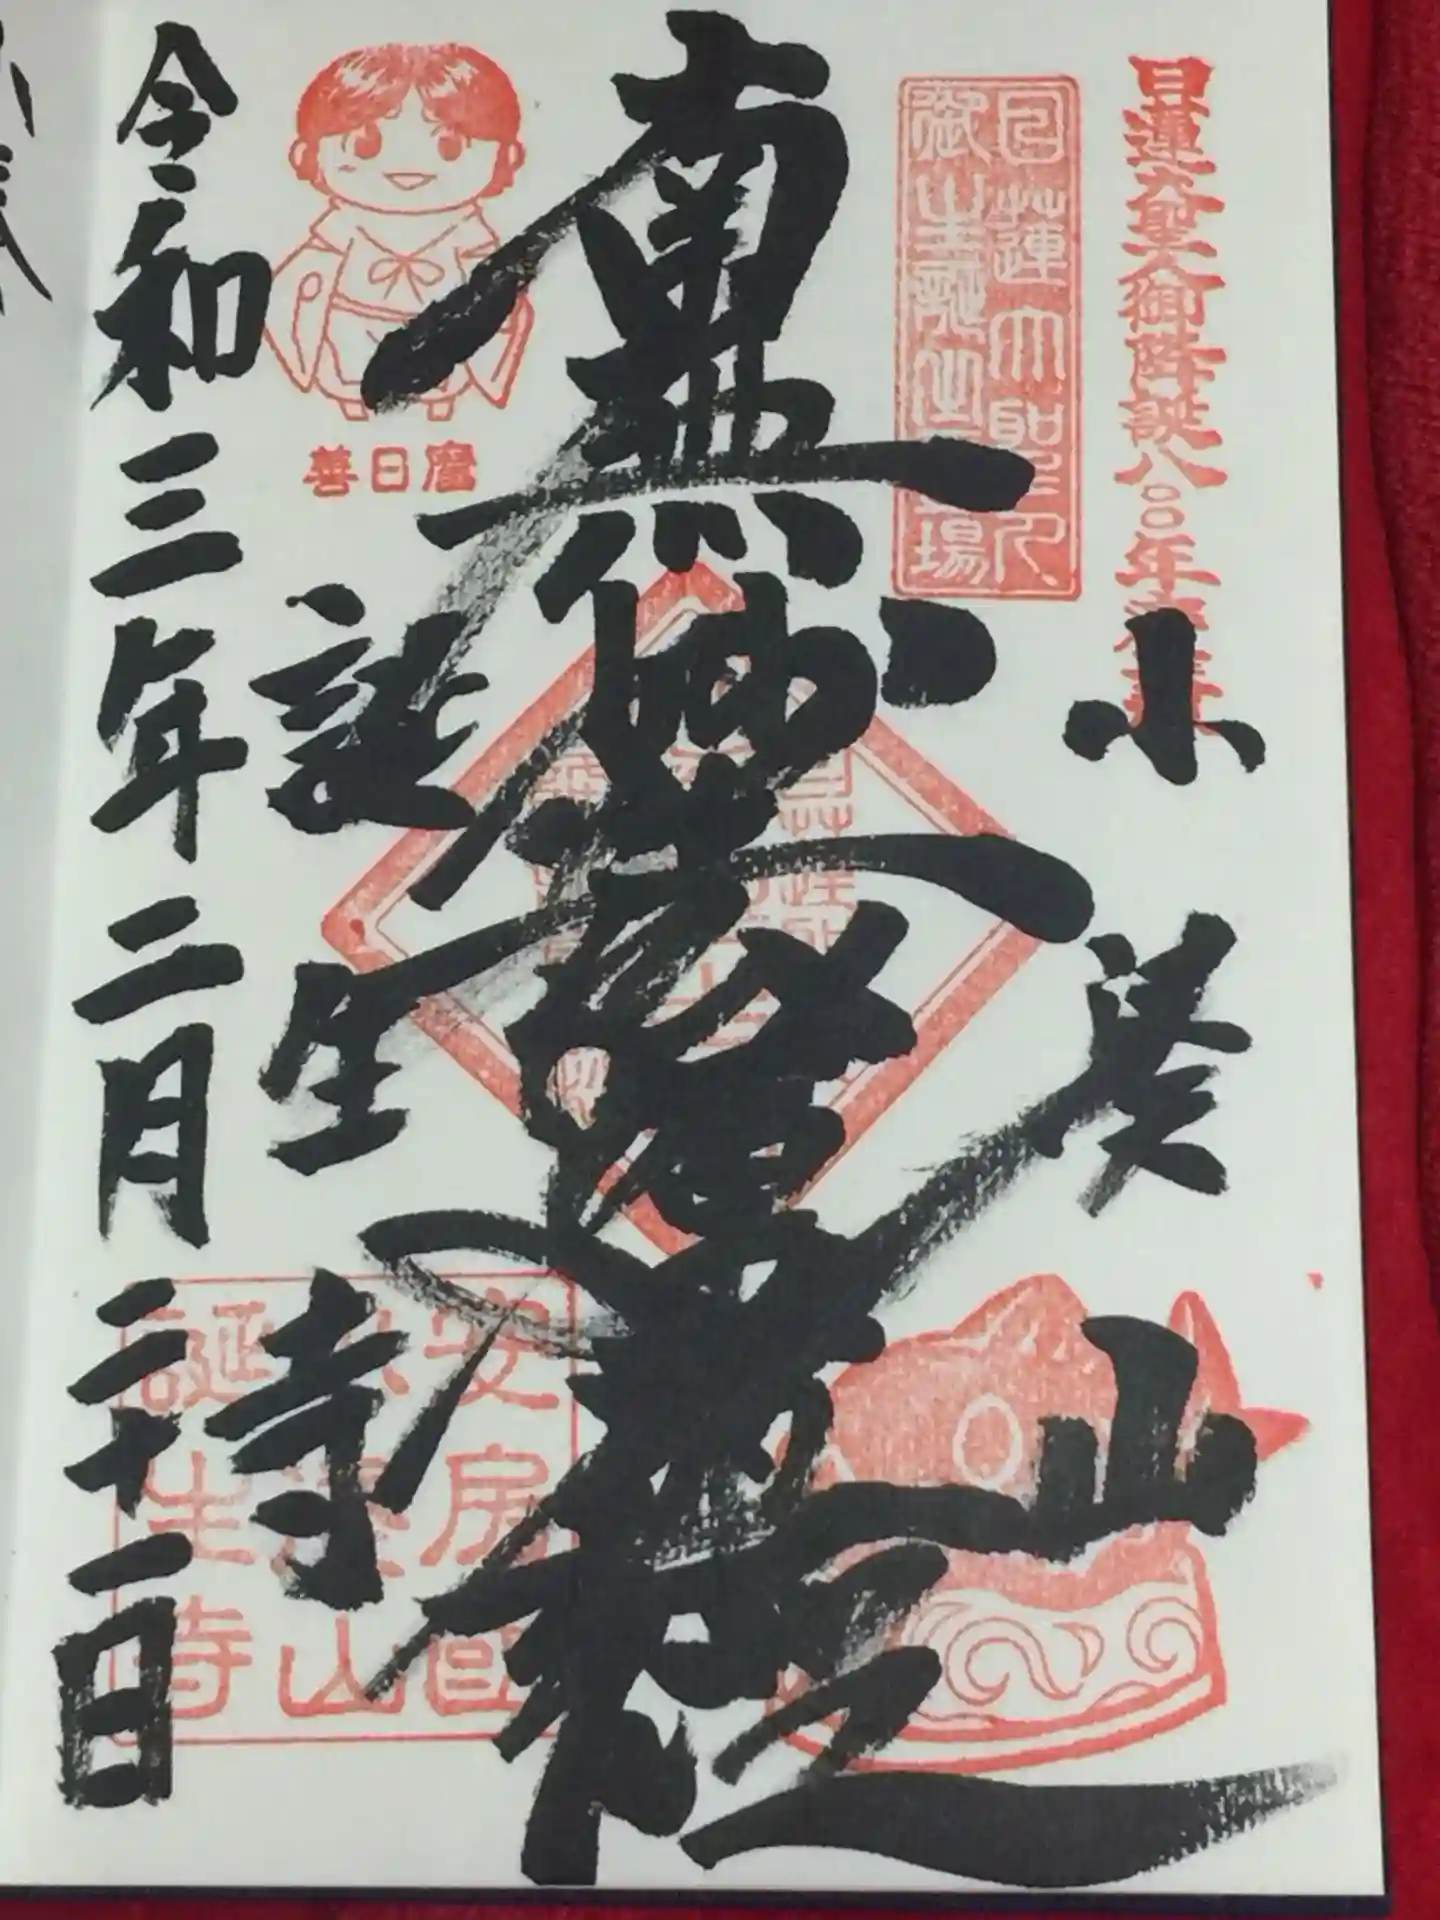 日蓮大聖人御降誕八〇〇年慶讃
小湊山
日蓮大聖人
御生誕之霊場
南無妙法蓮華経
善日麿
誕生寺
安房国
小湊山
誕生寺
令和三年二月二十二日